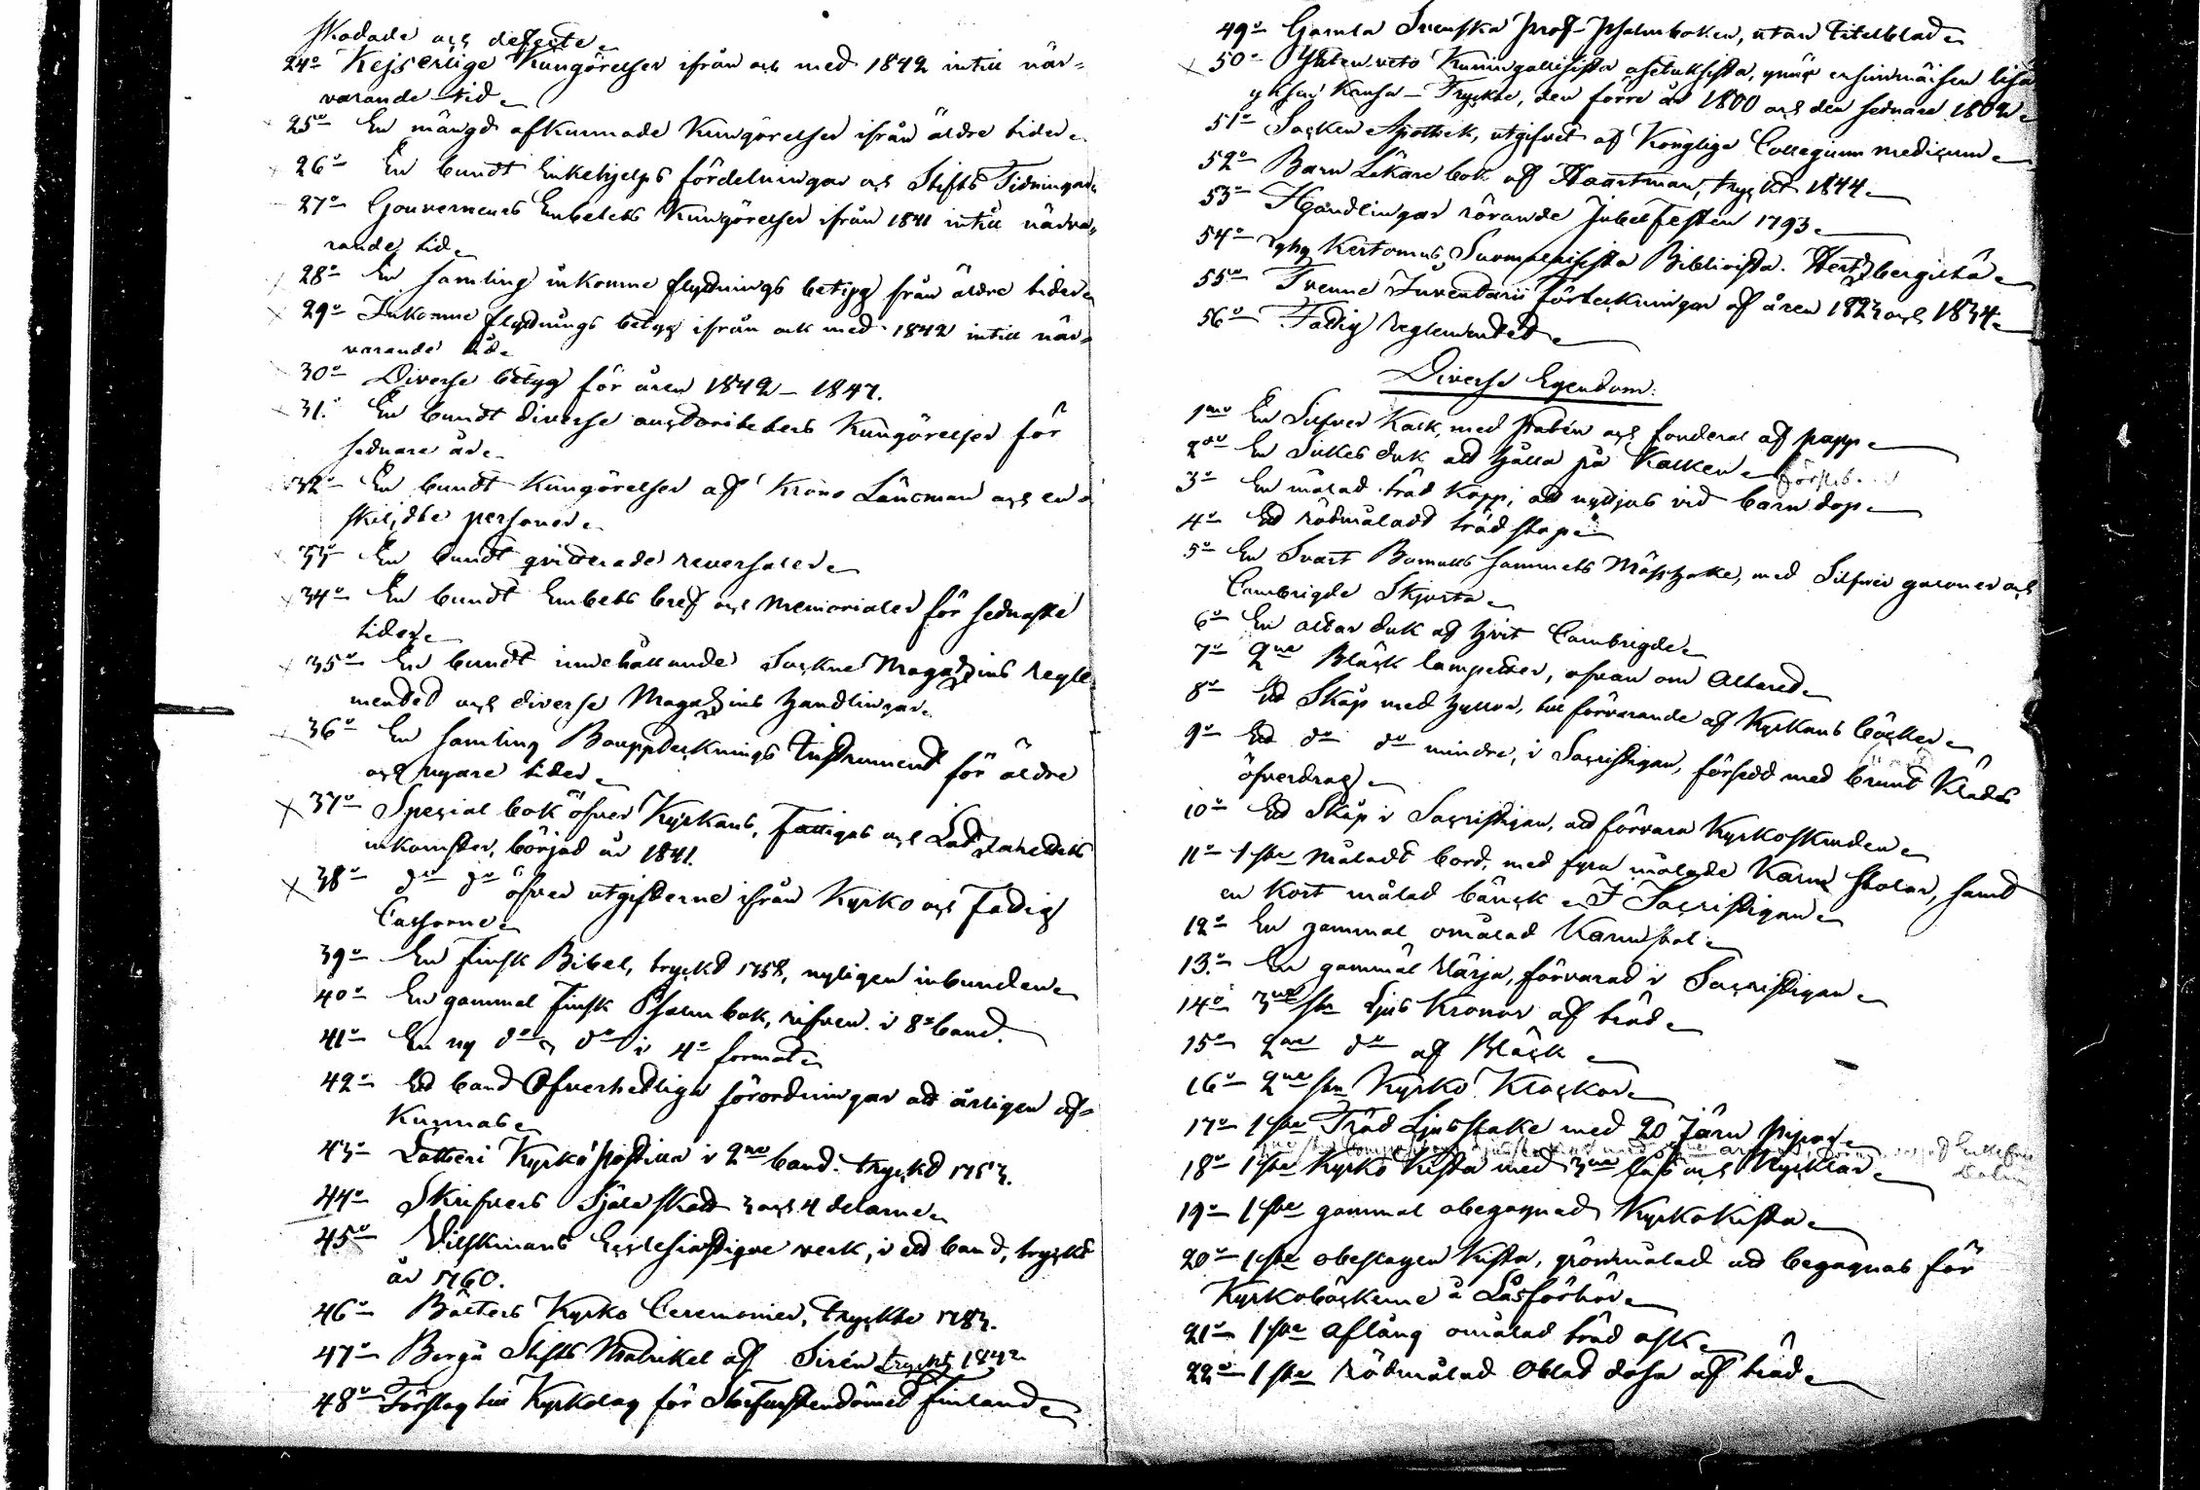 skadade och defecte
24o Kejserlige Kungörelser ifrån och med 1842 intill när-
varande tid
25o En mängd afkunnade Kungörelser ifrån äldre tider
26o En bundt Enkehjelps fördelningar och Stifts Tidningar
27o Gouverneurs Embetets Kungörelser ifrån 1841 intill närva-
rande tid
28o En samling inkomne flyttnings betyg från äldre tider
29o Inkomne flyttnings betyg ifrån och med 1842 intill när-
varande tid
30o Diverse betyg för åren 1842 – 1847.
31. En bundt diverse auctoriteters Kungörelser för
sednare år
32o En bundt Kungörelser af Krono Länsman och en
skildte personer
33o En bundt qvitterade reversaler
34o En bundt Embets bref och Memorialer för sednaste
tider
35o En bundt innehållande Sockne Magatzins regle
mentet och diverse Magatzins handlingar
36o En samling Bouppteknings Instrument för äldre
och nyare tider
37o Special bok öfver Kyrkans, Fattigas och
inkomster, börjad år 1841.
38o do do öfver utgifterne ifrån Kyrko och Fattig
Cassorne
39o En Finsk Bibel, tryckt 1758, nyligen inbunden
40o En gammal Finsk Psalmbok, rifven i 8o band.
41o En ny do do i 4o format
42o Ett band Öfverhetliga förordningar att årligen af-
kunnas
43o Lætteri Kyrko postilla i 2ne band. tryckt 1753.
44o Skrifvers Själa Skatt 3 och 4 delarne
45o Wilskmans Ecclesiastique verk, i ett band, tryckt
år 1760.
46o Bælters Kyrko Ceremonier, tryckte 1783.
47o Borgå Stifts Matrikel af Sirén tryckt 1842
48o Förslag till Kyrkolag för Storfurstendömet Finland
49o Gamla Svenska Prof-Psalmboken, utan titelblad
50o Yhteenveto Kuningallisista asetuksista, ynnä ensimmäisen lisä
yksen kansa – Tryckte, den förre år 1800 och den sednare 1802
51o Socken Apothek, utgifvet af Kongliga Collegium medicum
52o Barn Läkare bok af Haartman, tryckt 1844
53o Handlingar rörande Jubel Festen 1793
54o Lyhy Kertomus Suomalaisista Biblioista. Hertzbergiltä
55o Trenne Inventarii förteckningar af åren 1823 och 1834
56o Fattig reglementet
Diverse Egendom:
1mo En Silfver Kalk, med paten och fonderal af papp
2do En Silkes duk att hålla på Kalken
3o En målad träd Kopp, att nyttjas vid barn dop
4o Ett rödmåladt träd stop
5o En Svart Bomulls Sammets Mässhake, med Silfver galoner och
Cambrigde Skjorta
6o En altar duk af hvit Cambrigde
7o 2ne Bläck lampetter, ofvan om Altaret
8o Ett Skåp med hyllor, till förvarande af Kyrkans böcker
9o Ett do do mindre, i Sacristigan, försedt med brunt Klädes
öfverdrag
10o Ett Skåp i Sacristigan, att förvara Kyrkoskruden
11o 1 ste måladt bord, med fyra målade Karm stolar, samt
en Kort målad bänck i Sacristigan
12o En gammal omålad Karmstol
13o En gammal Värja, förvarad i Sacristigan
14o 3ne ste Ljus Kronor af träd
15o 2ne do af Bläck
16o 2ne ste Kyrko Klockor
17o 1 ste Träd Ljusstake med 20 Järn pipor
18o 1 ste Kyrko Kista med 3ne lås och Nycklar
19o 1 ste gammal obegagnad Kyrko Kista
20o 1 ste obeslagen Kista, grönmålad att begagnas för
Kyrkoböckerne å Läsförhör
21o 1 ste aflång omålad träd ask
22o 1 ste rödmålad Oblat dosa af träd